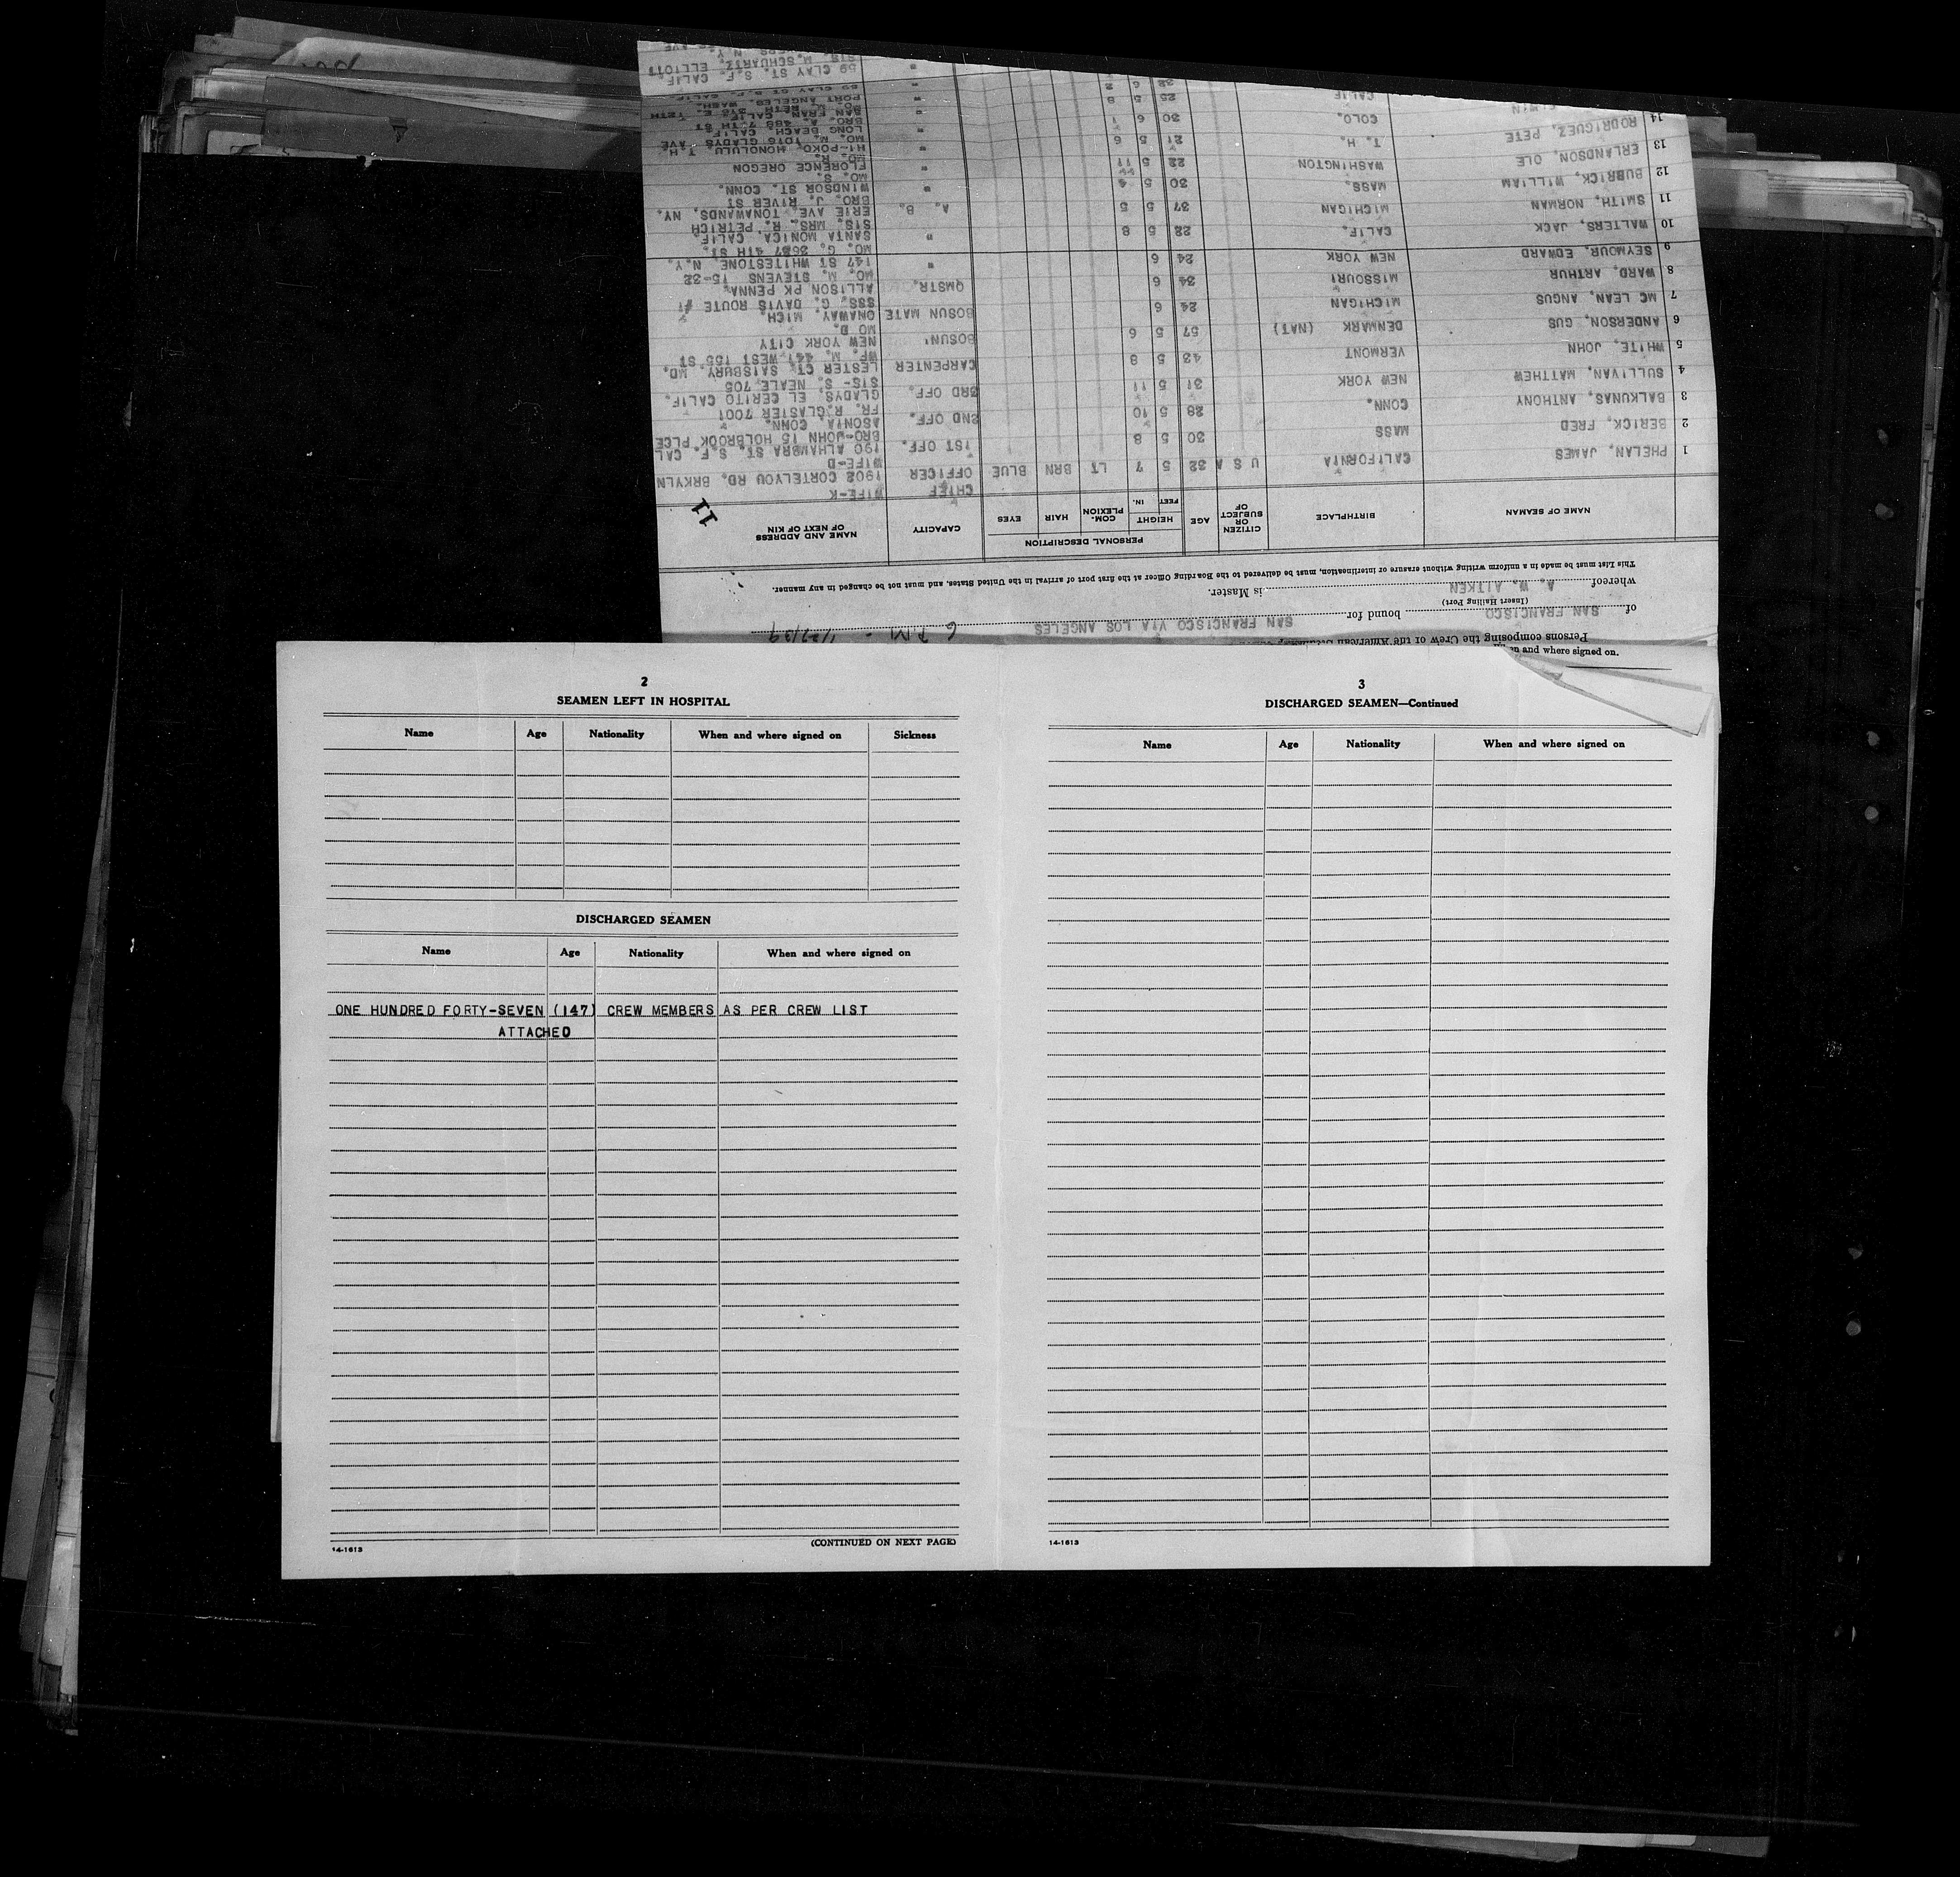 2
SEAMEN LEFT IN HOSPITAL
Name Age Nationality When and where signed on Sickness
DISCHARGED SEAMEN
Name Age Nationality When and where signed on
ONE HUNDRED FORTY-SEVEN (147) CREW MEMBERS AS PER CREW LIST
ATTACHED
(CONTINUED ON NEXT PAGE)
14-1613
3
DISCHARGED SEAMEN—Continued
Name Age Nationality When and where signed on
14-1613
and where signed on.
Persons composing the Crew of the American
of SAN FRANCISCO bound for SAN FRANCISCO VIA LOS ANGELES 6 PM -
(Insert Hailing Port)
whereof A. W. AITKEN is Master.
This List must be made in a uniform writing without erasure or interlineation, must be delivered to the Boarding Officer at the first port of arrival in the United States, and must not be changed in any manner.
NAME OF SEAMAN BIRTHPLACE CITIZEN OR SUBJECT OF AGE PERSONAL DESCRIPTION HEIGHT FEET IN. COM- PLEXION HAIR EYES CAPACITY NAME AND ADDRESS OF NEXT OF KIN
11
1 PHELAN, JAMES CALIFORNIA U S A 32 5 7 LT BRN BLUE CHIEF OFFICER WIFE-K 1902 CORTELYOU RD. BRKYLN
2 BERICK, FRED MASS 30 5 8 1ST OFF. WIFE-D 190 ALHAMBRA ST. S.F. CAL
3 BALKUNAS, ANTHONY CONN. 28 5 10 2ND OFF. BRO-JOHN 15 HOLBROOK PLCE ASONIA, CONN.
4 SULLIVAN, MATTHEW NEW YORK 31 5 11 3RD OFF. FR. R.GLASTER 7001 GLADYS, EL CERITO CALIF.
5 WHITE, JOHN VERMONT 42 5 8 CARPENTER SIS- S. NEALE 705 LESTER CT. SAISBURY, MD.
6 ANDERSON, GUS DENMARK (NAT) 57 5 6 BOSUN' WF. M. 447 WEST 155 ST NEW YORK CITY
7 MC LEAN, ANGUS MICHIGAN 24 6 BOSUN MATE MO D. ONAWAY, MICH.
8 WARD, ARTHUR MISSOURI 34 6 QMSTR. SSS. G. DAVIS ROUTE #1 ALLISON PK PENNA.
9 SEYMOUR, EDWARD NEW YORK 24 6 " MO. M. STEVENS 15-32 147 ST WHITESTONE, N.Y.
10 WALTERS, JACK CALIF. 22 5 8 " MO. G. 2627 4TH ST. SANTA MONICA, CALIF.
11 SMITH, NORMAN MICHIGAN 37 5 5 A. B. SIS. MRS. R. PETRICH ERIE AVE. TONAWANDS, NY.
12 BUBRICK, WILLIAM MASS. 30 5 4 " BRO. J. RIVER ST WINDSOR ST. CONN.
13 ERLANDSON, OLE WASHINGTON 22 5 11 " MO. S. FLORENCE OREGON
14 RODRIGUEZ, PETE T. H. 21 5 6 " MO. R. HI-POKO, HONOLULU T. H.
COLO. 30 6 1 " MO. M. 1016 GLADYS AVE LONG BEACH, CALIF
CALIF 25 5 8 " BRO. A. 488 7TH ST SAN FRAN. CALIF.
PORT ANGELES, WASH.
59 CLAY ST. S.F. CALIF.
SIS. M.SCHUARTZ, ELLIOTT